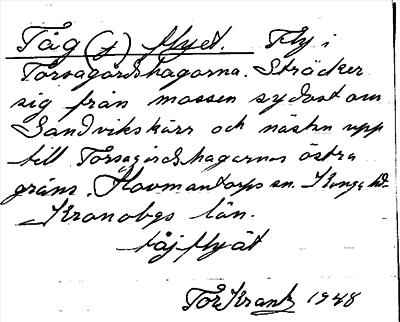 Tåg(j) flyet. Fly i
Torsagårdshagarna. Sträcker
sig från mossen sydost om
Sandvikskärr och nästan upp
till Torsagårdshagarnas östra
gräns. Hovmantorps sn. Konga hd.
Kronobgs län.
tåjflyät
Tor Krantz 1948